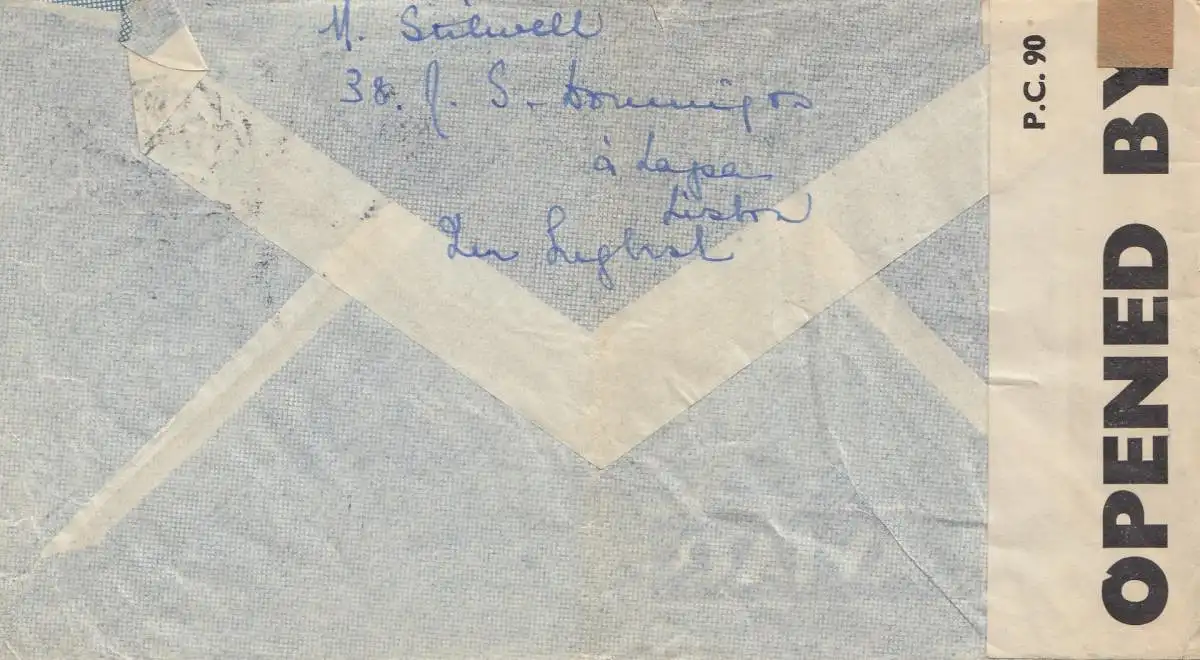 M. Stilwell
38. R. S. Domingos
à Lapa
Lisbon
P.C. 90
OPENED BY